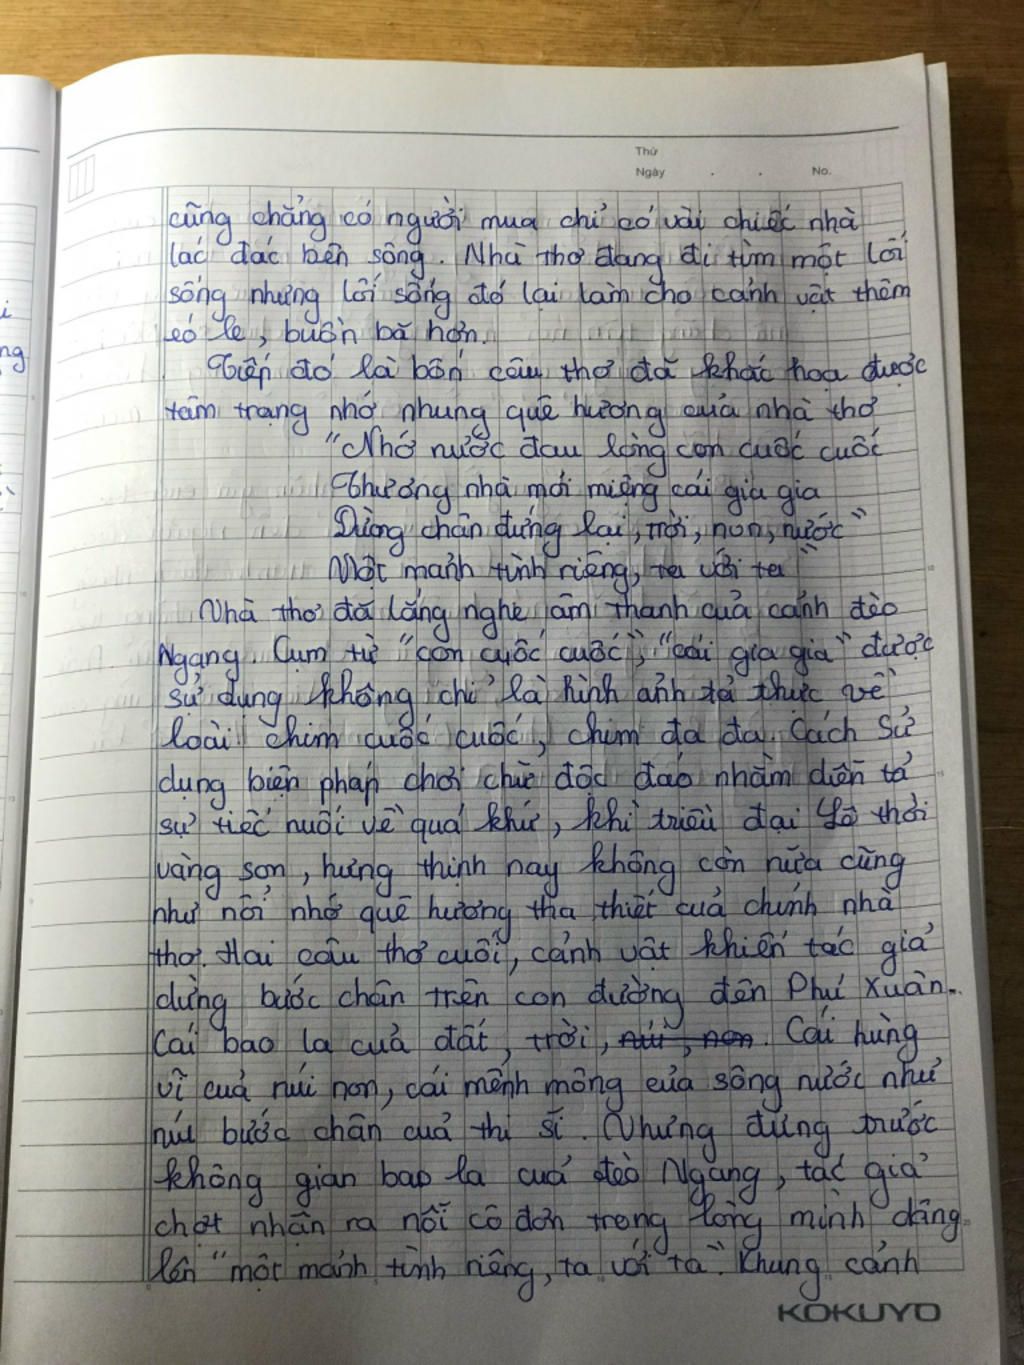 Thứ
Ngày . . No.
cũng chẳng có người mua chỉ có vài chiếc nhà
lác đác bên sông. Nhà thơ đang đi tìm một lối
sống nhưng lối sống đó lại làm cho cảnh vật thêm
éo le, buồn bã hơn.
Tiếp đó là bốn câu thơ đã khắc hoạ được
tâm trạng nhớ nhung quê hương của nhà thơ
"Nhớ nước đau lòng con cuốc cuốc
Thương nhà mỏi miệng cái gia gia
Dừng chân đứng lại, trời, non, nước"
Một mảnh tình riêng, ta với ta"
Nhà thơ đã lắng nghe âm thanh của cảnh đèo
Ngang. Cụm từ "con cuốc cuốc", "cái gia gia" được
sử dụng không chỉ là hình ảnh tả thực về
loài chim cuốc cuốc, chim đa đa. Cách sử
dụng biện pháp chơi chữ độc đáo nhằm diễn tả
sự tiếc nuối về quá khứ, khi triều đại Lê thời
vàng son, hưng thịnh nay không còn nữa cũng
như nỗi nhớ quê hương tha thiết của chính nhà
thơ. Hai câu thơ cuối, cảnh vật khiến tác giả
dừng bước chân trên con đường đến Phú Xuân..
Cái bao la của đất, trời, núi, non. Cái hùng
vĩ của núi non, cái mênh mông của sông nước như
níu bước chân của thi sĩ. Nhưng đứng trước
không gian bao la của đèo Ngang, tác giả
chợt nhận ra nỗi cô đơn trong lòng mình dâng
lên "một mảnh tình riêng, ta với ta". Khung cảnh
KOKUYO